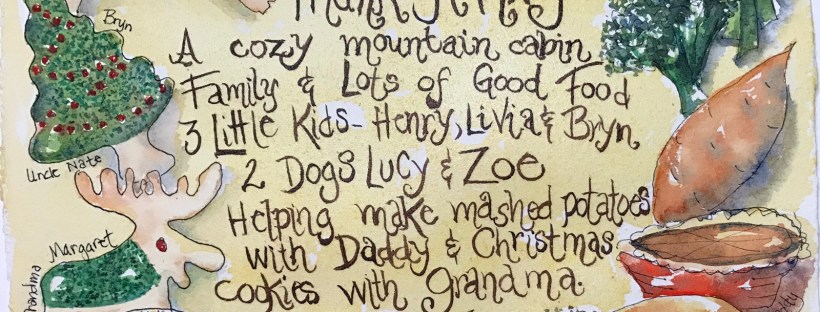 Thanksgiving
Bryn
A cozy mountain cabin
Family & Lots of Good Food
3 Little Kids - Henry, Livia & Bryn
Uncle Nate
2 Dogs Lucy & Zoe
Helping make mashed potatoes
Margaret
with Daddy & Christmas
Grandma
cookies with grandma.